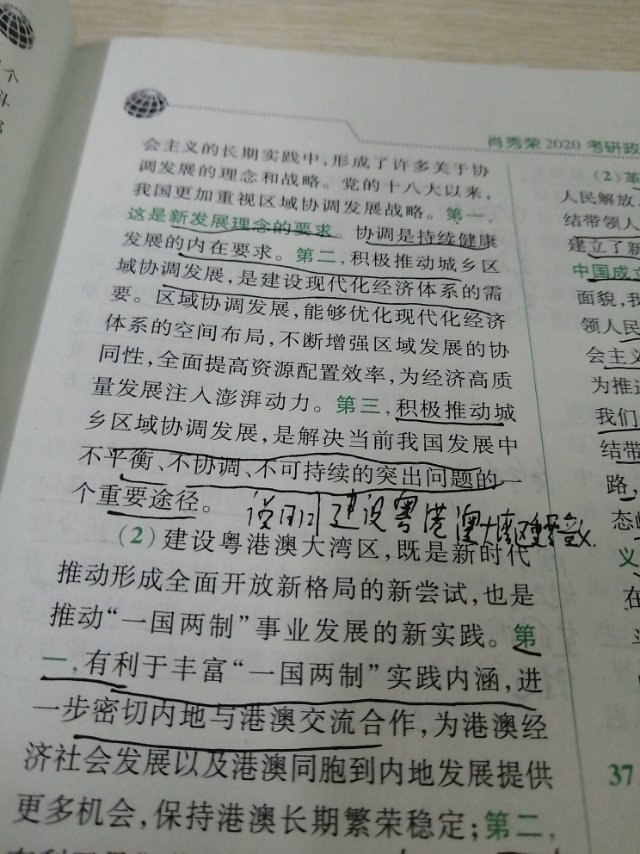 个
肖秀荣 2020 考研政
会主义的长期实践中，形成了许多关于协
调发展的理念和战略。党的十八大以来，
我国更加重视区域协调发展战略。第一，
这是新发展理念的要求。协调是持续健康
发展的内在要求。第二，积极推动城乡区
域协调发展，是建设现代化经济体系的需
要。区域协调发展，能够优化现代化经济
体系的空间布局，不断增强区域发展的协
同性，全面提高资源配置效率，为经济高质
量发展注入澎湃动力。第三，积极推动城
乡区域协调发展，是解决当前我国发展中
不平衡、不协调、不可持续的突出问题的一
个重要途径。
说明建设粤港澳大湾区重要意义.
(2) 建设粤港澳大湾区，既是新时代
推动形成全面开放新格局的新尝试，也是
推动“一国两制”事业发展的新实践。第
一，有利于丰富“一国两制”实践内涵，进
一步密切内地与港澳交流合作，为港澳经
济社会发展以及港澳同胞到内地发展提供
更多机会，保持港澳长期繁荣稳定；第二，
(2) 革
人民解放
结带领人
建立了新
中国成立
面貌，我
领人民
会主义
为推进
我们
结带
路，
态
义
在
37